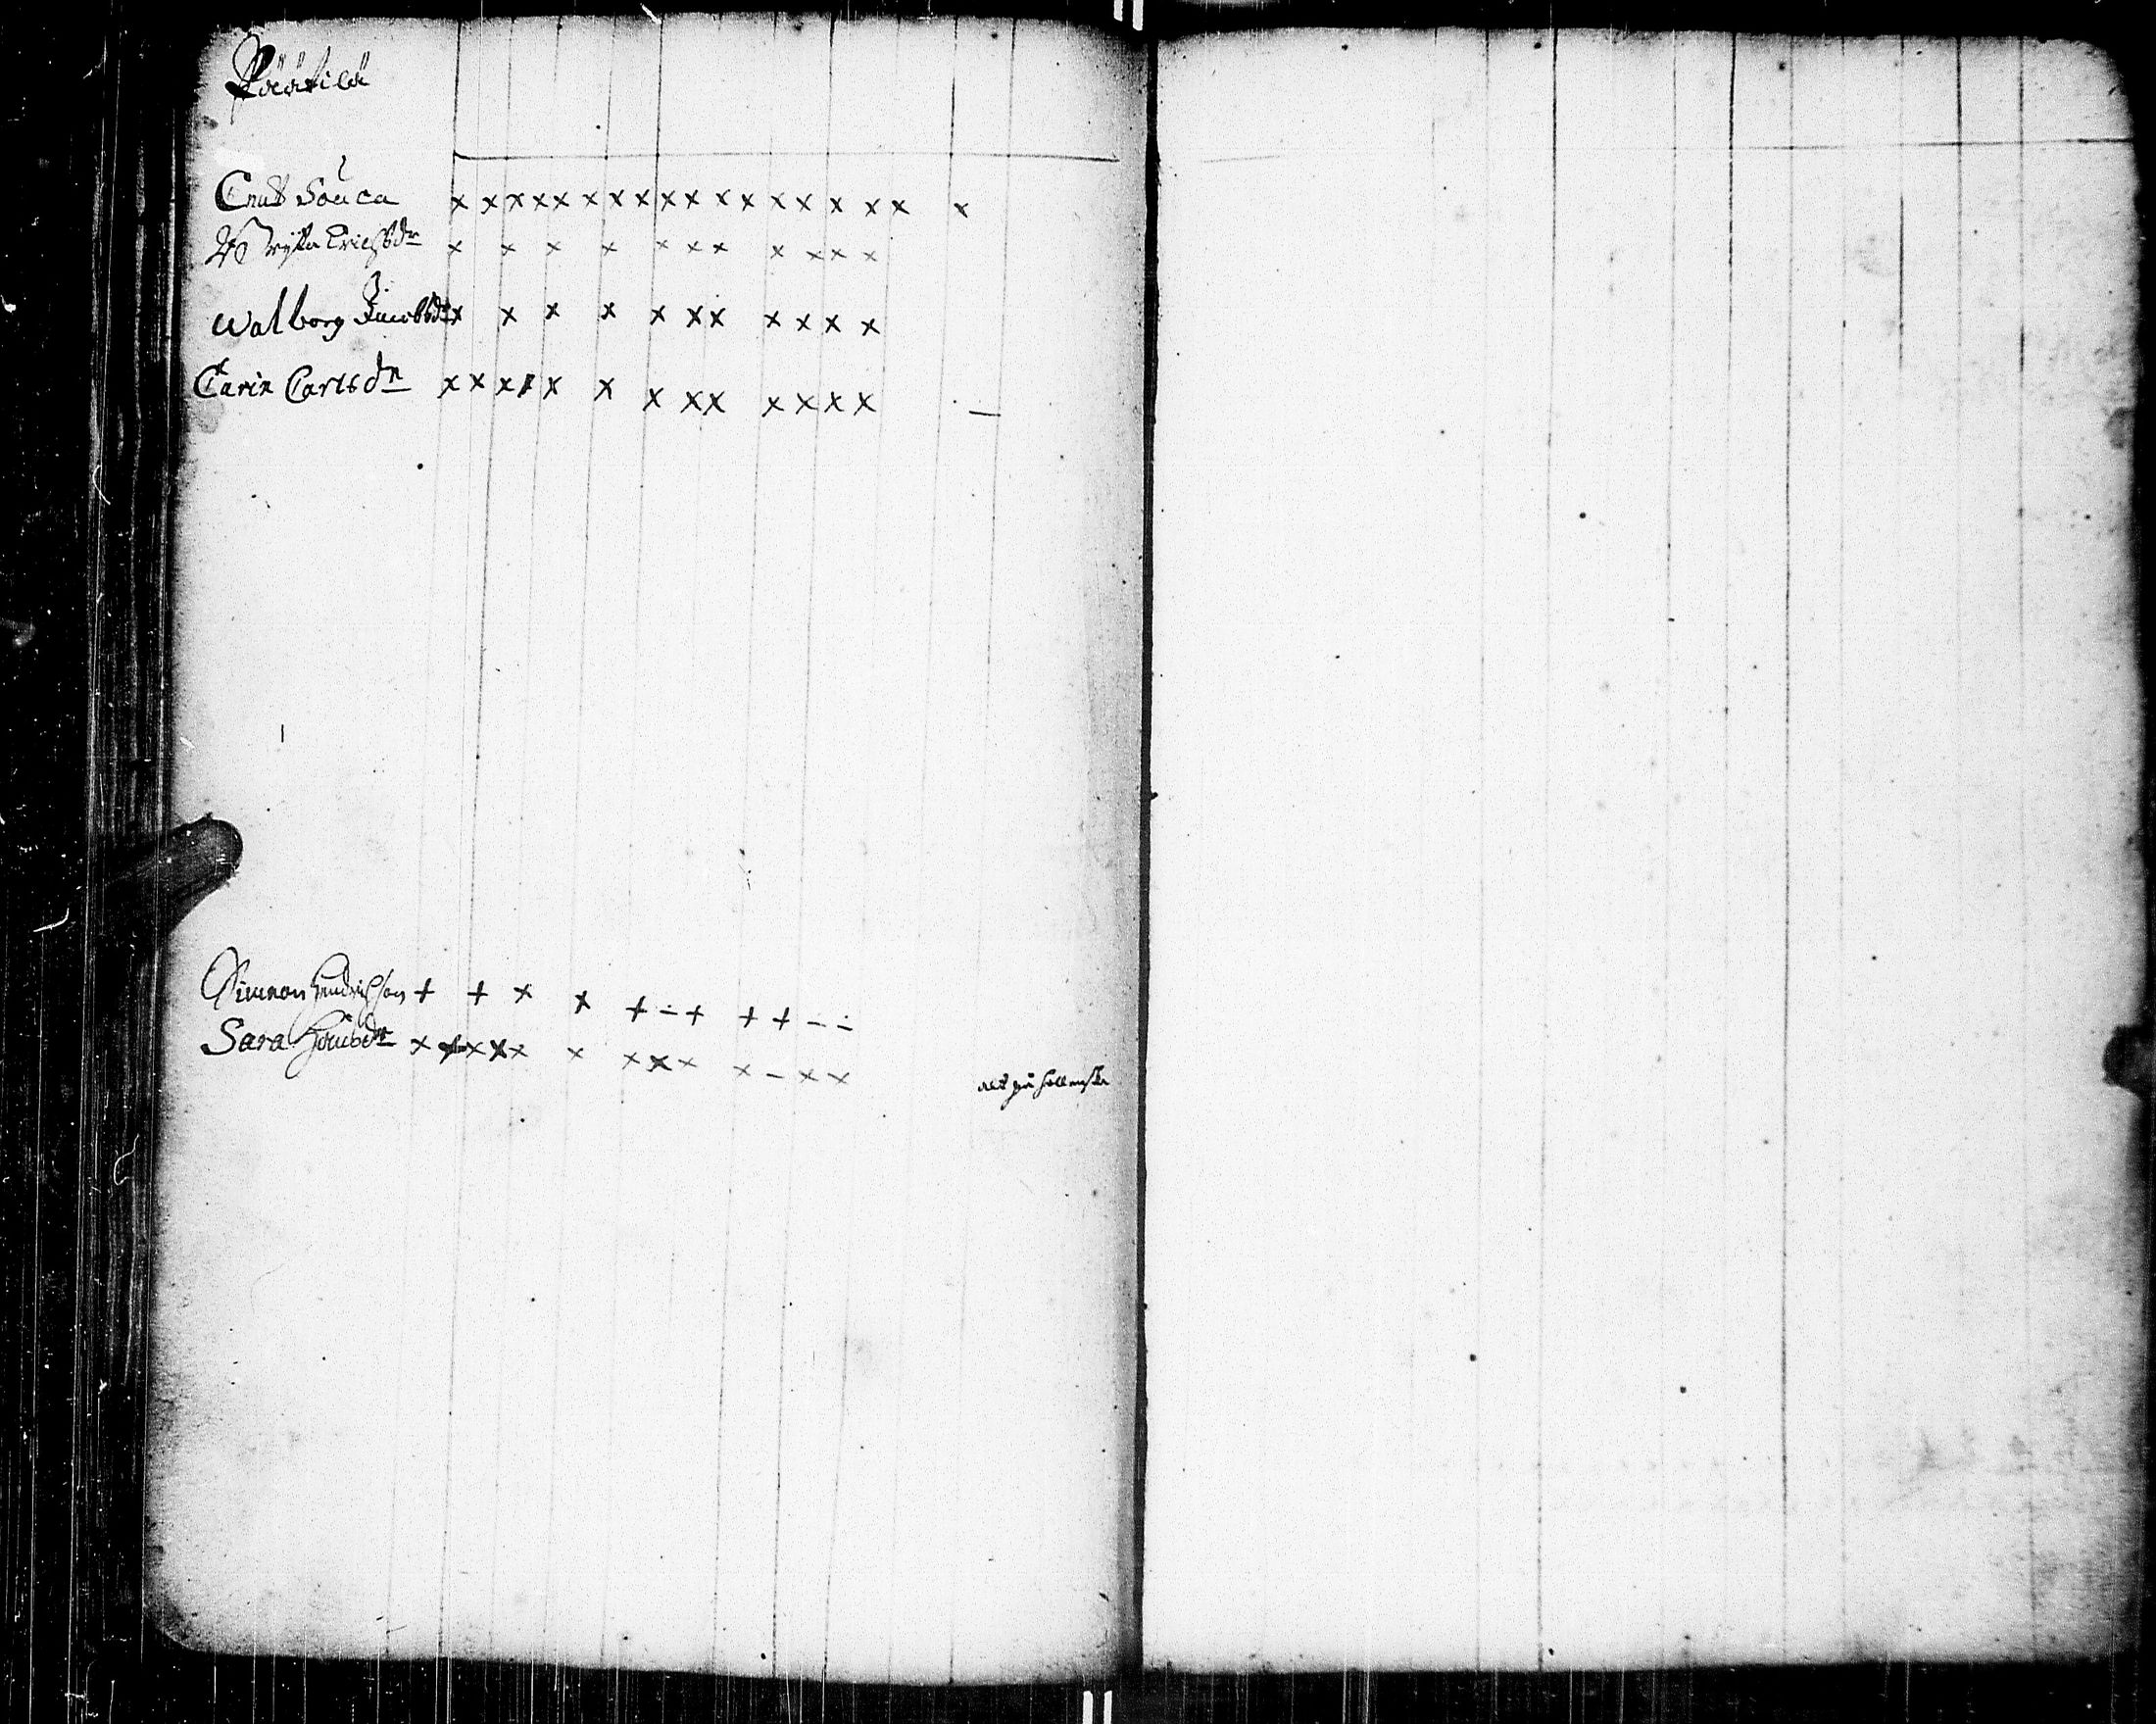 Päätilä
Cnut Souca x x x x x x x x x x x x x x x x x x
H Brijta Erichsdr x x x x x x x x x x x
Walborg Jacobsdr x x x x x x x x x x x
Carin Carlsdr x x x x x x x x x x x x x —
Simeon Hendrichson + + x x + – + + + – –
Sara x x x x x x x x x x – x x
alt på